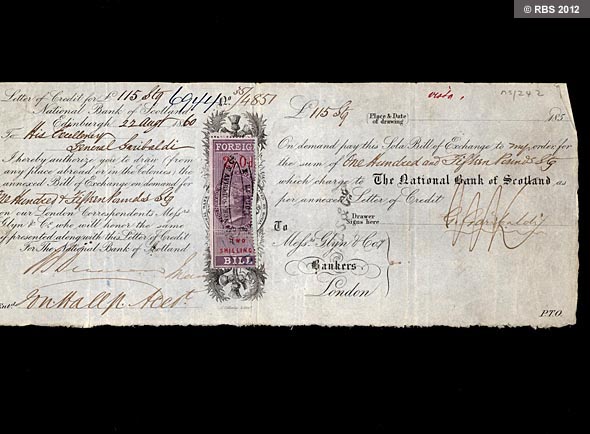 © RBS 2012
Letter of Credit for £ 115 Stg
No 35/4851
National Bank of Scotland
Edinburgh 22 Augt 1860
To His Excellency
General Garibaldi
I hereby authorize you to draw (from
any place abroad or in the Colonies) the
annexed Bill of Exchange on demand for
One Hundred & Fifteen Pounds Stg
on our London Correspondents Messrs
Glyn & Co who will honor the same
if presented along with this Letter of Credit
For The National Bank of Scotland
Acct.
FOREIGN
TWO
SHILLINGS
BILL
£ 115 Stg
Place & Date
of drawing
185
On demand pay this Sola Bill of Exchange to my order for
the sum of One Hundred and Fifteen Pounds Stg
which charge to The National Bank of Scotland as
per annexed Letter of Credit
Drawer
signs here
G Garibaldi
To
Messrs Glyn & Coy
Bankers
London
P.T.O.